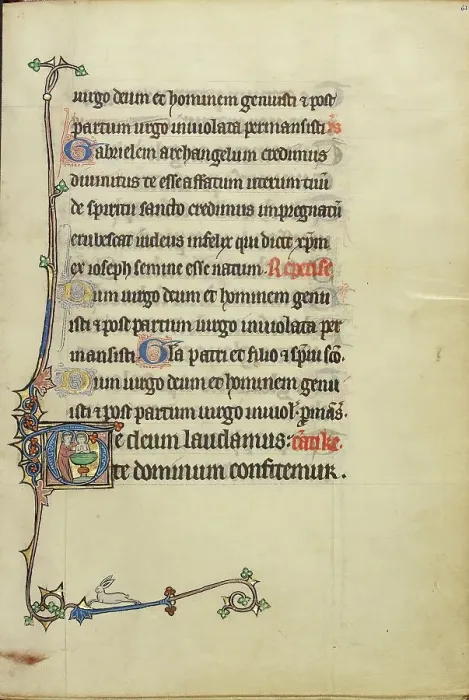 uirgo deum et hominem genuisti ⁊ post
partum uirgo inuiolata permansisti
Gabrielem archangelum credimus
diuinitus te esse affatum uterum tuū
de spiritu sancto credimus impregnatū
erubescat iudeus infelix qui dicit xp̄m
ex ioseph semine esse natum.
Dum uirgo deum et hominem genu
isti ⁊ post partum uirgo inuiolata per
mansisti. Gl̄a patri et filio ⁊ sp̄ui sc̄o.
Dum uirgo deum et hominem genu
isti ⁊ post partum uirgo inuiol' ꝑmās'.
Te deum laudamus: cātike.
te dominum confitemur.